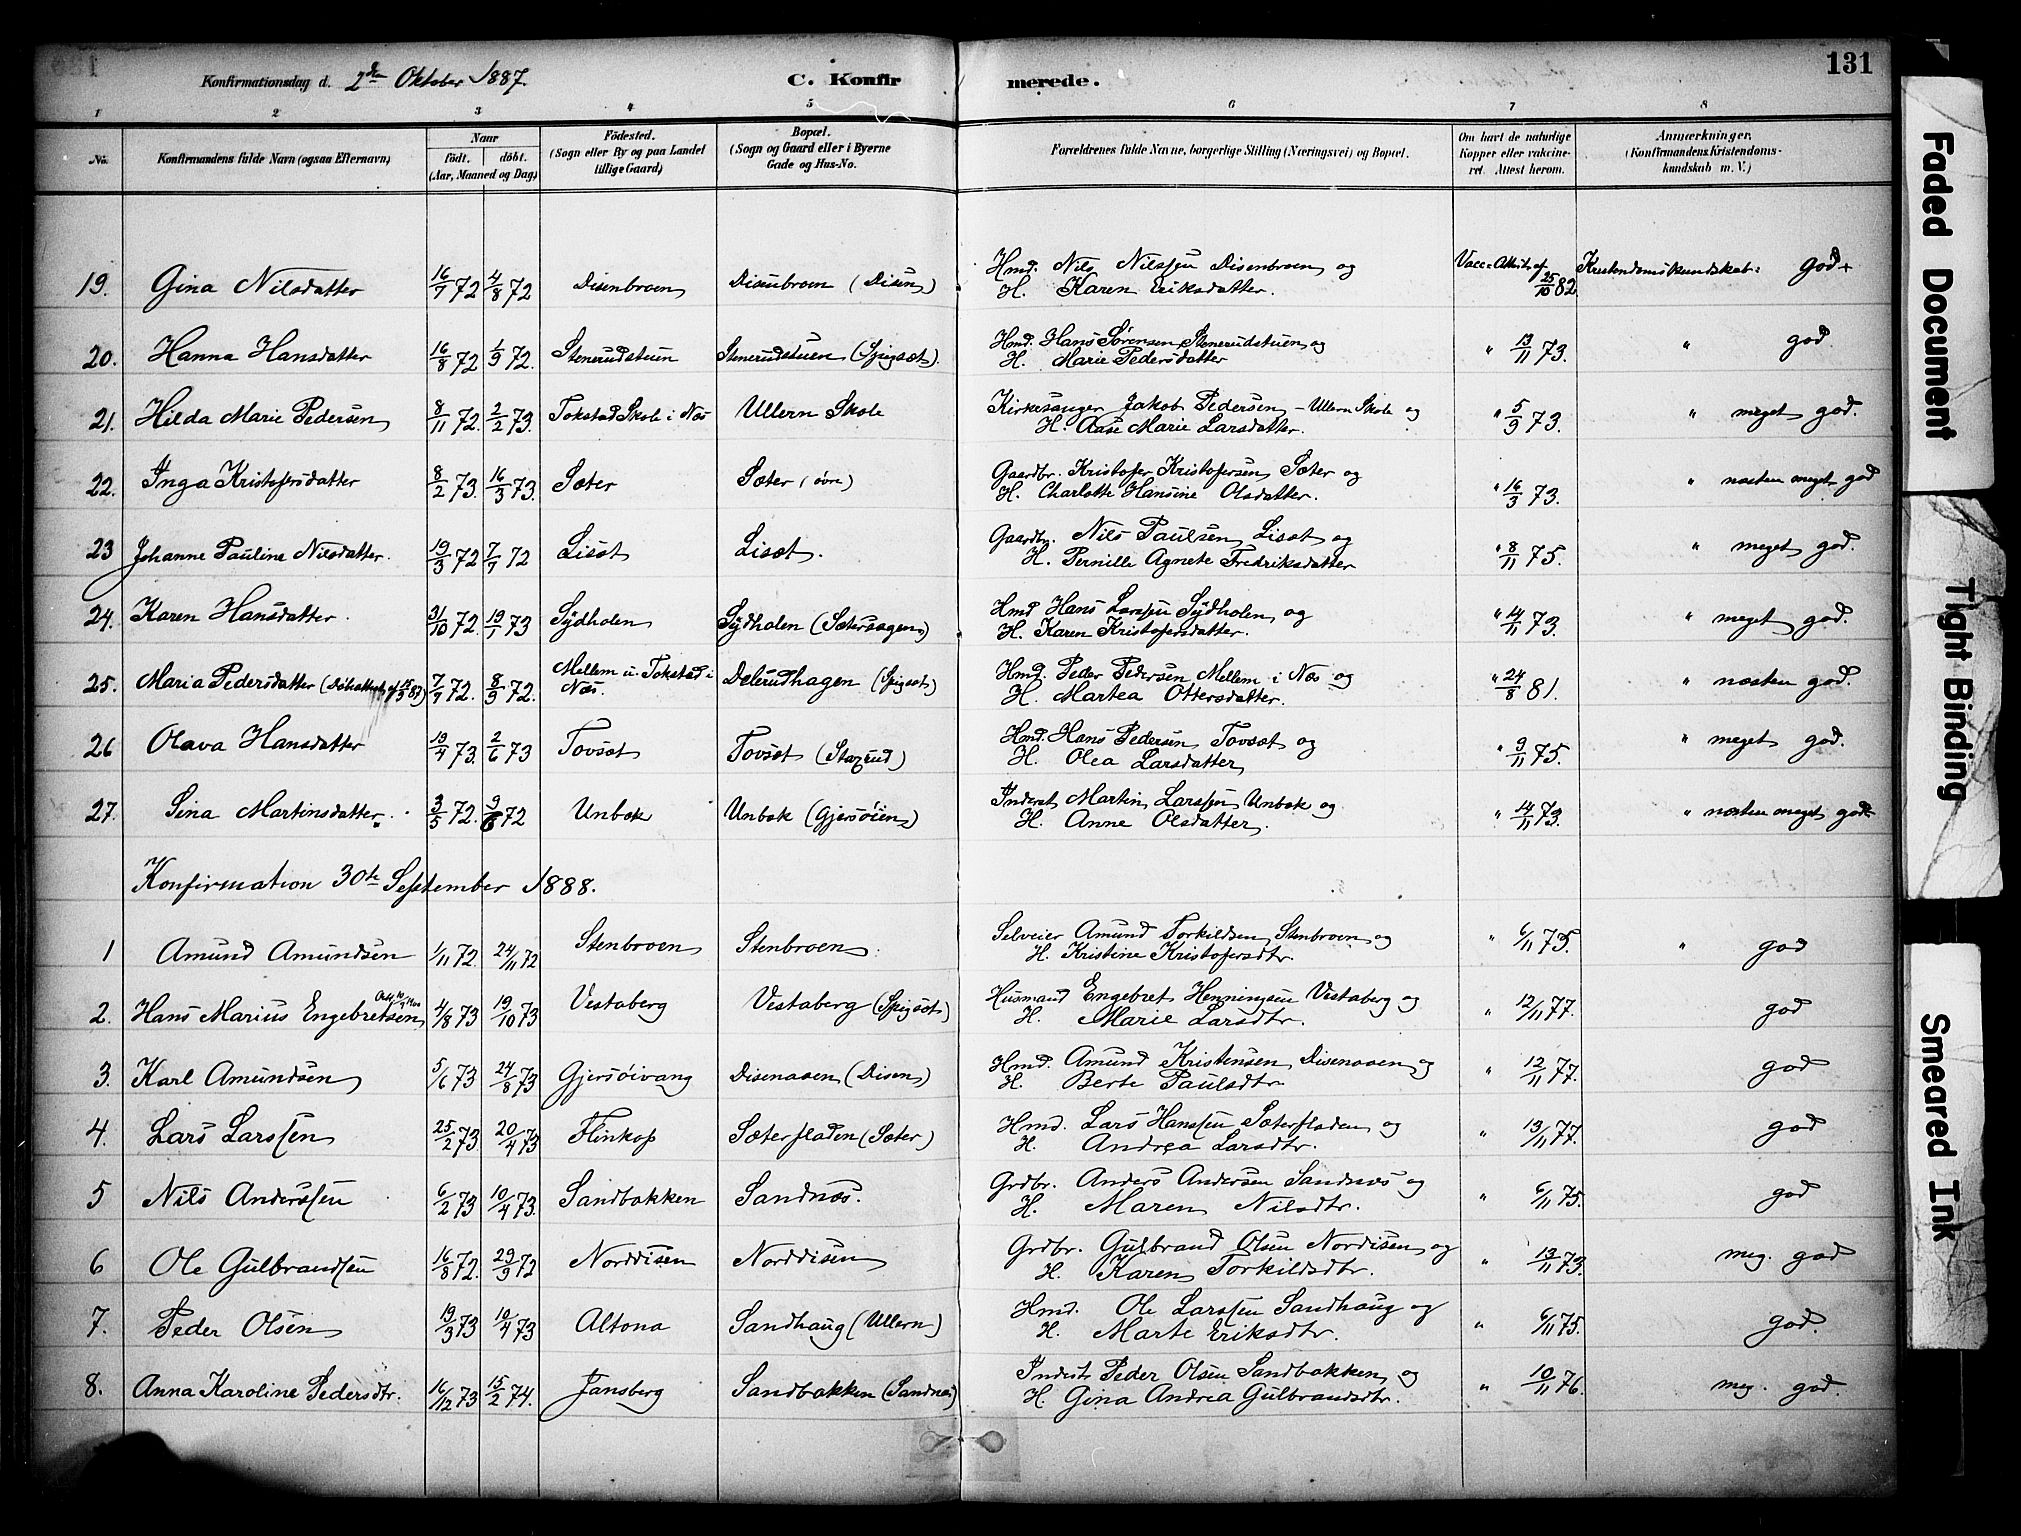 131
Konfirmationsdag d. 2den Oktober 1887.
C. Konfirmerede.
1 2 3 4 5 6 7 8
No. Konfirmandens fulde Navn (ogsaa Efternavn) Naar födt. döbt. (Aar, Maaned og Dag) Födested. (Sogn eller By og paa Landet tillige Gaard) Bopæl. (Sogn og Gaard eller i Byerne Gade og Hus-No. Forældrenes fulde Navne, borgerlige Stilling (Næringsvei) og Bopæl. Om havt de naturlige Kopper eller vaccineret. Attest herom. Anmærkninger. (Konfirmandens Kristendomskundskab m. V.)
19. Gina Nilsdatter 16/7 72 4/8 72 Disenbroen Disenbroen (Disen) Hmd. Nils Nilssen Disenbroen og H. Karen Eriksdatter. Vacc. Attest af 25/10 82 Kristendomskundskab: god+
20. Hanna Hansdatter 16/8 72 1/9 72. Stenerudstuen Stenerudstuen (Spigsæt). Hmd. Hans Sörensen Stenerudstuen og H. Marie Pedersdatter " 13/11 73. " god
21. Hilda Marie Pedersen 8/11 72. 2/2 73. Tokstad Skole i Næs Ullern Skole Kirkesanger Jakob Pedersen – Ullern Skole og H. Aase Marie Larsdatter. " 5/9 73. " meget god.
22. Inga Kristofersdatter 8/2 73. 16/3 73. Sæter Sæter (övre) Gaardbr. Kristofer Kristofersen Sæter og H. Charlotte Hansine Olsdatter. " 16/3 73. " næsten meget god
23 Johanne Pauline Nilsdatter. 19/3 72 7/7 72 Lisæt Lisæt. Gaardbr. Nils Paulsen Lisæt og H. Pernille Agnete Fredriksdatter " 8/11 75. " meget god.
24. Karen Hansdatter. 31/10 72. 19/1 73 Sydholen Sydholen (Sætersagen) Hmd Hans Larssen Sydholen og H. Karen Kristofersdatter. " 14/11 73. " meget god.
25. Maria Pedersdatter 7/7 72. 8/9 72. Mellem u. Tokstad i Næs. Delerudhagen (Spigsæt) Hmd. Peder Pedersen Mellem i Næs og H. Martea Ottersdatter. " 24/8 81. " næsten god.
26 Olava Hansdatter 19/4 73. 2/6 73 Tovsæt Tovsæt (Staxrud) Hmd. Hans Pedersen Tovsæt og H. Olea Larsdatter " 9/11 75. " meget god.
27. Sina Martinsdatter. 3/5 72. 9/6 72 Unbæk Unbæk (Gjersöien) Inderst Martin Larssen Unbæk og H. Anne Olsdatter. " 14/11 73. " næsten meget god
Konfirmation 30te September 1888.
1 Amund Amundsen 1/11 72. 24/11 72 Stenbroen Stenbroen. Selveier Amund Torkildsen Stenbroen og H. Kristine Kristofersdtr. " 6/11 75. " god
2. Hans Marius Engebretsen 4/8 73 19/10 73 Vestaberg Vestaberg (Spigsæt) Husmand Engebret Henningsen Vestaberg og H. Marie Larsdtr. " 12/11 77. god
3. Karl Amundsen 5/6 73 24/8 73 Gjersöivang Disenaaen (Disen) Hmd. Amund Kristensen Disenaaen og H. Berte Paulsdtr " 12/11 77. god
4. Lars Larssen 25/2 73. 20/4 73 Flinkop Sæterfladen (Sæter) Hmd. Lars Hanssen Sæterfladen og H. Andrea Larsdtr. " 13/11 77. god
5 Nils Anderssen 6/2 73 10/4 73. Sandbakken Sandnæs. Grdbr. Anders Andersen Sandnæs og H. Maren Nilsdtr. " 6/11 75. god
6 Ole Gulbrandsen 16/8 72. 29/9 72 Norddisen Norddisen Grdbr. Gulbrand Olsen Nordisen og H. Karen Torkildsdtr. " 13/11 73. meg. god
7. Peder Olsen 19/3 73 10/4 73 Altona Sandhaug (Ullern) Hmd. Ole Larssen Sandhaug og H. Marte Eriksdtr. " 6/11 75. god.
8. Anna Karoline Pedersdtr. 16/12 73 15/2 74. Jansberg Sandbakken (Sandnæs) Inderst Peder Olsen Sandbakken og H. Gina Andrea Gulbrandsdtr. " 10/11 76. meg. god.
Faded Document
Tight Binding
Smeared Ink